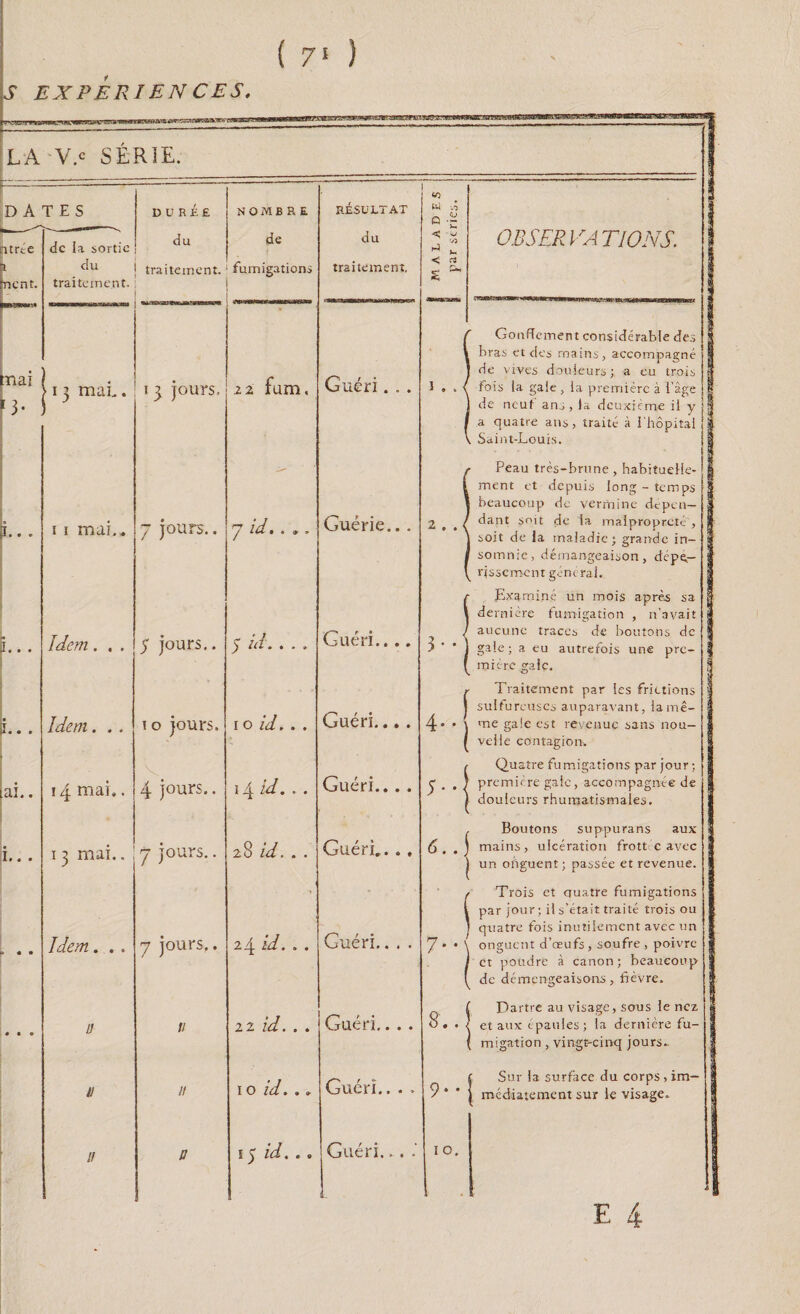 ( 71 )
S EXPÉRIENCES.
LA V.e SÉRIE.
DATES
de la sortie du traitement.
DURÉE du traitement.
NOMBRE de fumigations
RÉSULTAT du traitement.
MALADES par séries.
OBSERVATIONS.
mai 13. 13 mai.. 13 jours. 22 fum. Guéri... 1..
Gonflement considérable des
bras et des mains, accompagné
de vives douleurs; a eu trois
fois la gale, la première à l'âge
de neuf ans, la deuxième il y
a quatre ans, traité à l'hôpital
Saint-Louis.
i... 11 mai.. 7 jours.. 7 id.... Guérie... 2..
Peau très-brune, habituelle-
ment et depuis long-temps
beaucoup de vermine dépen-
dant soit de la malpropreté,
soit de la maladie; grande in-
somnie, démangeaison, dépé-
rissement général.
i... Idem... 5 jours.. 5 id.... Guéri.... 3..
Examiné un mois après sa
dernière fumigation, n'avait
aucune traces de boutons de
gale; a eu autrefois une pre-
mière gale.
i... Idem... 10 jours. 10 id... Guéri.... 4..
Traitement par les frictions
sulfureuses auparavant, la mê-
me gale est revenue sans nou-
velle contagion.
ai.. 14 mai.. 4 jours.. 14 id... Guéri.... 5..
Quatre fumigations par jour;
première gale, accompagnée de
douleurs rhumatismales.
i... 13 mai.. 7 jours.. 28 id... Guéri.... 6..
Boutons suppurans aux
mains, ulcération frottée avec
un onguent; passée et revenue.
... Idem... 7 jours.. 24 id... Guéri.... 7..
Trois et quatre fumigations
par jour; il s'était traité trois ou
quatre fois inutilement avec un
onguent d'œufs, soufre, poivre
et poudre à canon; beaucoup
de démengeaisons, fièvre.
... " " 22 id... Guéri.... 8..
Dartre au visage, sous le nez
et aux épaules; la dernière fu-
migation, vingt-cinq jours.
" " 10 id... Guéri.... 9..
Sur la surface du corps, im-
médiatement sur le visage.
" " 15 id... Guéri.... 10.
E 4